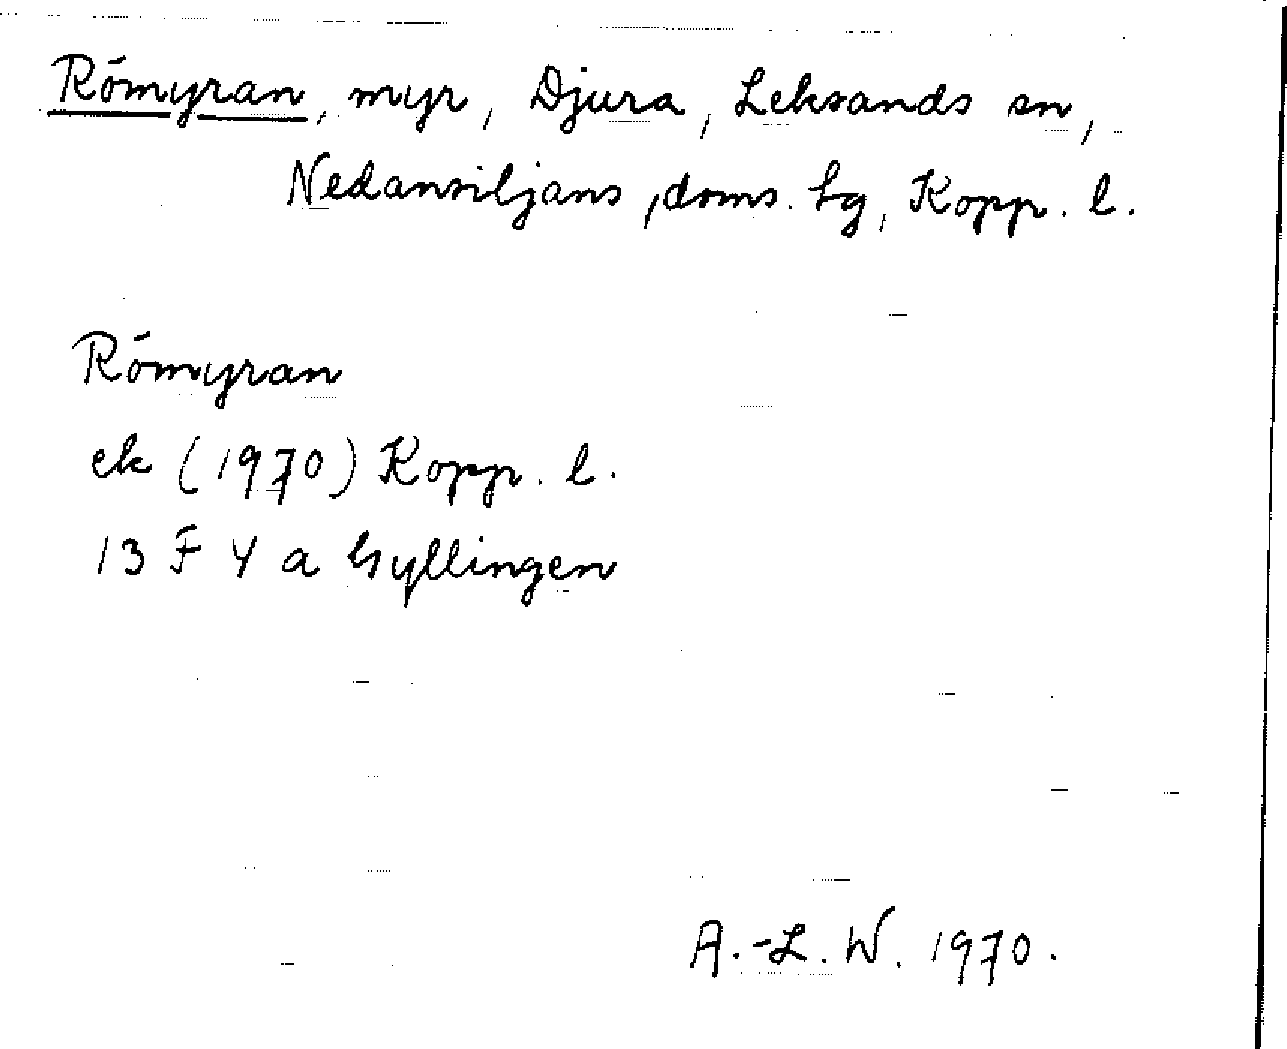 Römyran, myr, Djura, Leksands sn,
Nedansiljans, doms. hg, Kopp. l.
Römyran
ek (1970) Kopp. l.
13 F 4 a Gyllingen
A.-L. W. 1970.